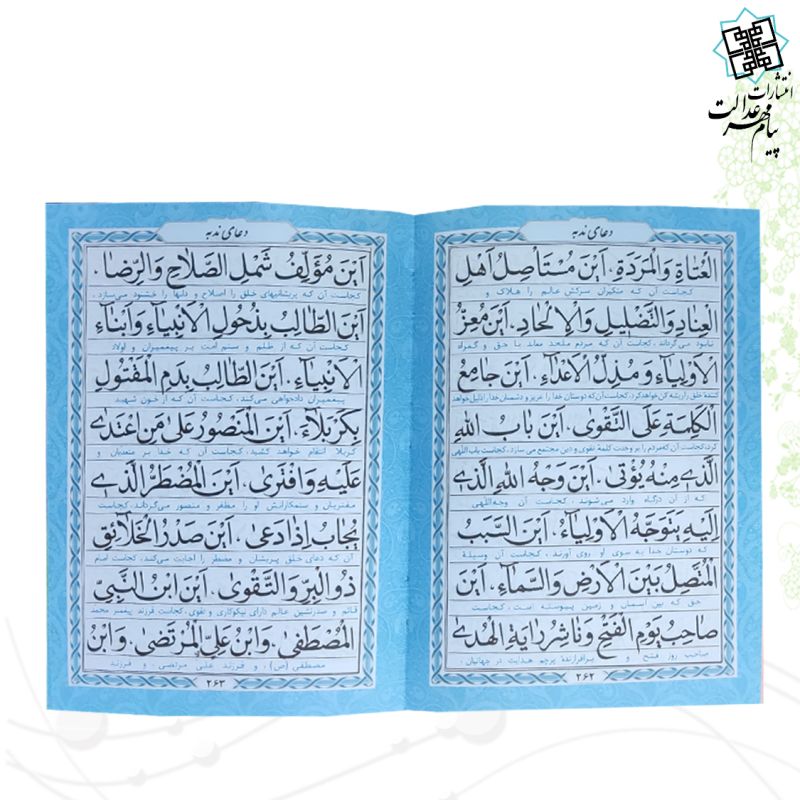 انتشارات
پیام مهر عدالت
دعای ندبه
الْعُتاةِ وَالْمَرَدَةِ، اَيْنَ مُسْتَاْصِلُ اَهْلِ
کجاست آن که متکبران سرکش عالم را هلاک و
الْعِنادِ وَالتَّضْليلِ وَالْاِلْحادِ، اَيْنَ مُعِزُّ
نابود می‌گرداند، کجاست آن که مردم ملحد معاند با حق و گمراه
الْاَوْلِياۤءِ وَ مُذِلُّ الْاَعْداۤءِ، اَيْنَ جامِعُ
کننده خلق را ریشه کن خواهد کرد، کجاست آن که دوستان خدا را عزیز و دشمنان خدا را ذلیل خواهد
الْكَلِمَةِ عَلَى التَّقْوىٰ، اَيْنَ بابُ اللهِ
کرد، کجاست آن که مردم را بر وحدت کلمة تقوی و دین مجتمع می سازد، کجاست باب اللهی
الَّذى مِنْهُ يُؤْتىٰ، اَيْنَ وَجْهُ اللهِ الَّذى
که از آن درگاه وارد می‌شوند، کجاست آن وجه‌اللهی
اِلَيْهِ يَتَوَجَّهُ الْاَوْلِياۤءُ، اَيْنَ السَّبَبُ
که دوستان خدا به سوی او روی آورند، کجاست آن وسیلهٔ
الْمُتَّصِلُ بَيْنَ الْاَرْضِ وَالسَّماۤءِ، اَيْنَ
حق که بین آسمان و زمین پیوسته است، کجاست
صاحِبُ يَوْمِ الْفَتْحِ وَ ناشِرُ رايَةِ الْهُدىٰ
صاحب روز فتح و برافرازندهٔ پرچم هدایت در جهانیان،
۲۶۲
دعای ندبه
اَيْنَ مُؤَلِّفُ شَمْلِ الصَّلاحِ وَالرِّضا،
کجاست آن که پریشانیهای خلق را اصلاح و دلها را خشنود می‌سازد،
اَيْنَ الطّالِبُ بِذُحُولِ الْاَنْبِياۤءِ وَ اَبْناۤءِ
کجاست آن که از ظلم و ستم امت بر پیغمبران و اولاد
الْاَنْبِياۤءِ، اَيْنَ الطّالِبُ بِدَمِ الْمَقْتُولِ
پیغمبران دادخواهی می‌کند، کجاست آن که از خون شهید
بِكَرْبَلاۤءَ، اَيْنَ الْمَنْصُورُ عَلىٰ مَنِ اعْتَدىٰ
کربلا انتقام خواهد کشید، کجاست آن که خدا بر متعدیان و
عَلَيْهِ وَ افْتَرىٰ، اَيْنَ الْمُضْطَرُّ الَّذى
مفتریان و ستمکارانش او را مظفر و منصور می‌گرداند، کجاست
يُجابُ اِذا دَعىٰ، اَيْنَ صَدْرُ الْخَلاۤئِقِ
آن که دعای خلق پریشان و مضطر را اجابت می‌کند، کجاست امام
ذُو الْبِرِّ وَ التَّقْوىٰ، اَيْنَ ابْنُ النَّبِيِّ
قائم و صدرنشین عالم دارای نیکوکاری و تقوی، کجاست فرزند پیغمبر محمد
الْمُصْطَفىٰ، وَ ابْنُ عَلِيٍّ الْمُرْتَضىٰ، وَ ابْنُ
مصطفی (ص)، و فرزند علی مرتضی، و فرزند
۲۶۳